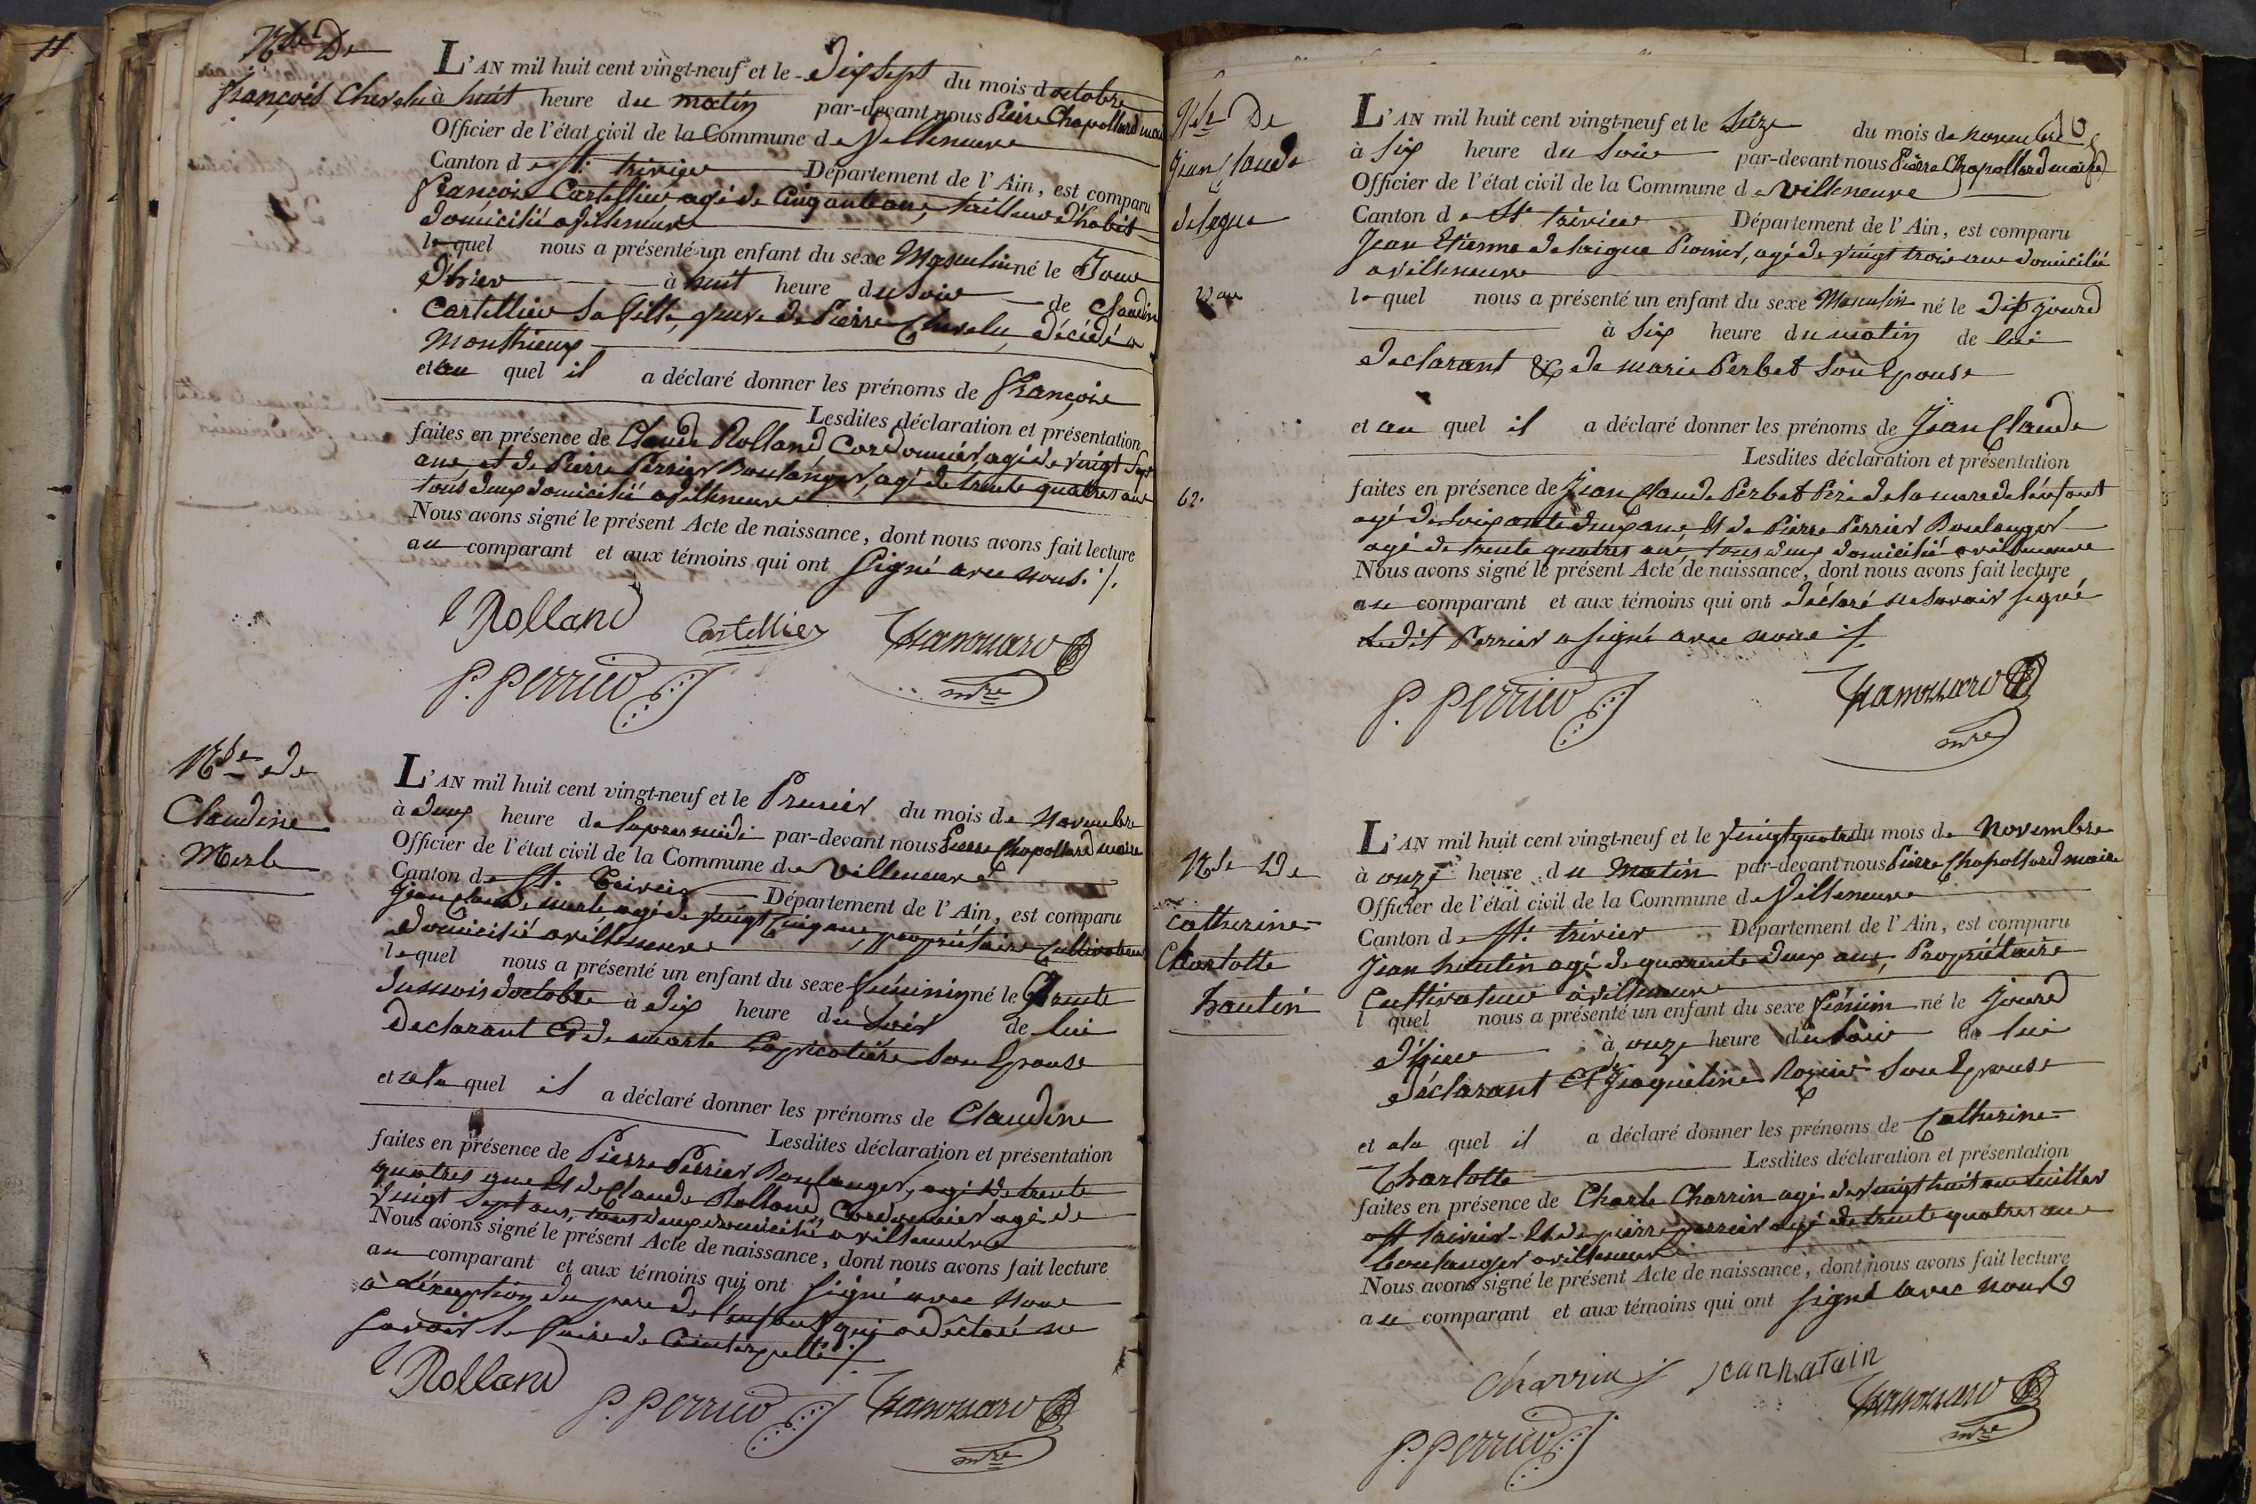 11
Nce De
françois Chevelu
L'AN mil huit cent vingt-neuf et le dix sept du mois doctobre
à huit heure du matin par-devant nous Pierre Chapollard maire
Officier de l'état civil de la Commune de Villeneuve
Canton de St. trivier Département de l'Ain, est comparu
françois Cartellier, agé de Cinquante ans, tailleur d'habit
domicilié a villeneuve
lequel nous a présenté un enfant du sexe Masculin né le Jour
d'hier à huit heure du Soir de Claudine
Cartellier Sa fille, veuve de Pierre Chevelu, décédé a
Monthieux
et au quel il a déclaré donner les prénoms de françois
Lesdites déclaration et présentation
faites en présence de Claude Rolland, Cordonnier, agé de vingt Sept
ans, et de Pierre Perrier Boulanger, agé de trente quatres ans
tous deux domicilié a villeneuve
Nous avons signé le présent Acte de naissance, dont nous avons fait lecture
au comparant et aux témoins qui ont Signé avec nous ./.
Rolland Cartellier
P. Perrier mre
Nce de
Claudine
Merle
L'AN mil huit cent vingt-neuf et le Premier du mois de Novembre
à deux heure de lapres midi par-devant nous Pierre Chapollard maire
Officier de l'état civil de la Commune de villeneuve
Canton de St. Trivier Département de l'Ain, est comparu
Jean Claude merle, agé de vingt Cinq ans, propriétaire Cultivateur
domicilié a villeneuve
lequel nous a présenté un enfant du sexe féminin né le trente
du mois d'octobre à dix heure du Soir de lui
declarant et de Son Epouse
et a la quel il a déclaré donner les prénoms de Claudine
Lesdites déclaration et présentation
faites en présence de Pierre Perrier, Boulanger, agé de trente
quatres ans et de Claude Rolland, Cordonnier agé de
vingt sept ans, tous deux domicilié a villeneuve
Nous avons signé le présent Acte de naissance, dont nous avons fait lecture
au comparant et aux témoins qui ont Signé avec nous
à l'éxception du pere de l'enfant qui a déclaré ne
savoir le faire de Ce interpellé ./.
Rolland
P. Perrier mre
Nce De
Jean Claude
delegue
62.
L'AN mil huit cent vingt-neuf et le Seize du mois de novembre
à Six heure du Soir par-devant nous Pierre Chapollard maire
Officier de l'état civil de la Commune de villeneuve
Canton de St. trivier Département de l'Ain, est comparu
Jean Etienne delaigue, agé de vingt trois ans domicilié
a villeneuve
lequel nous a présenté un enfant du sexe Masculin né le dit jour
à Six heure du matin de lui
declarant & de marie Perbet Son Epouse
et au quel il a déclaré donner les prénoms de Jean Claude
Lesdites déclaration et présentation
faites en présence de Jean Claude Perbet Pere de la mere de l'enfant
agé de Soixante deux ans, et de Pierre Perrier Boulanger
agé de trente quatres ans, tous deux domicilié a villeneuve
Nous avons signé le présent Acte de naissance, dont nous avons fait lecture
au comparant et aux témoins qui ont déclaré ne Savoir signé
Ledit Perrier a signé avec nous ./.
P. Perrier
mre
Nce De
Catherine
Charlotte
hautin
L'AN mil huit cent vingt-neuf et le vingt quatre du mois de Novembre
à onze heure du Matin par-devant nous Pierre Chapollard maire
Officier de l'état civil de la Commune de Villeneuve
Canton de St. trivier Département de l'Ain, est comparu
Jean hautin agé de quarente deux ans, Propriétaire
Cultivateur à villeneuve
l quel nous a présenté un enfant du sexe féminin né le Jour
d'hier à onze heure du Soir de lui
déclarant et Jaqueline Son Epouse
et a la quel il a déclaré donner les prénoms de Catherine
Charlotte Lesdites déclaration et présentation
faites en présence de Charle Charrin agé de vingt huit ans
a St trivier et de pierre perrier agé de trente quatres ans
boulanger a villeneuve
Nous avons signé le présent Acte de naissance, dont nous avons fait lecture
au comparant et aux témoins qui ont signé avec nous
Charrin Jean hatain
P. Perrier mre